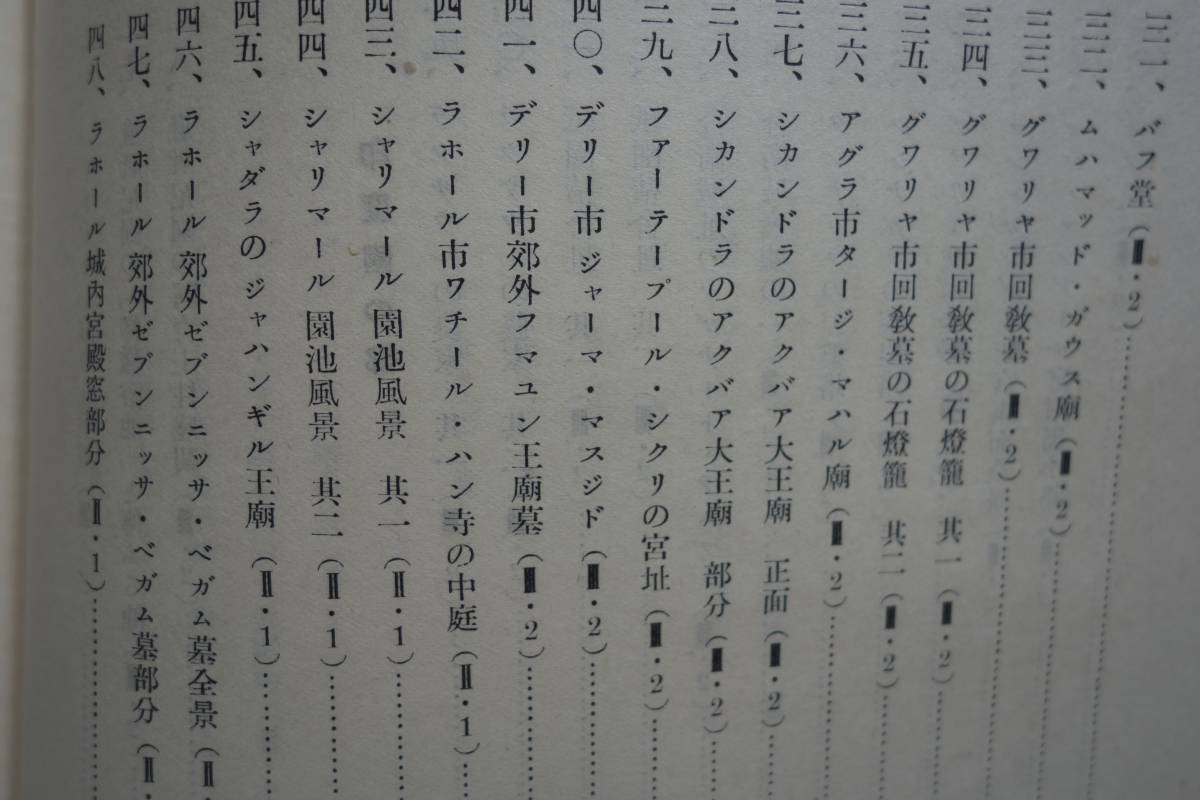 三一、バフ堂(Ⅲ・2)
三二、ムハマッド・ガウス廟(Ⅲ・2)
三三、グワリヤ市回教墓(Ⅲ・2)
三四、グワリヤ市回教墓の石燈籠 其一(Ⅲ・2)
三五、グワリヤ市回教墓の石燈籠 其二(Ⅲ・2)
三六、アグラ市タージ・マハル廟(Ⅲ・2)
三七、シカンドラのアクバア大王廟 正面(Ⅲ・2)
三八、シカンドラのアクバア大王廟 部分(Ⅲ・2)
三九、ファーテープール・シクリの宮址(Ⅲ・2)
四〇、デリー市ジャーマ・マスジド(Ⅲ・2)
四一、デリー市郊外フマユン王廟墓(Ⅲ・2)
四二、ラホール市ワチール・ハン寺の中庭(Ⅱ・1)
四三、シャリマール園池風景 其一(Ⅱ・1)
四四、シャリマール園池風景 其二(Ⅱ・1)
四五、シャダラのジャハンギル王廟(Ⅱ・1)
四六、ラホール郊外ゼブンニッサ・ベガム墓全景(Ⅱ
四七、ラホール郊外ゼブンニッサ・ベガム墓部分(Ⅱ・
四八、ラホール城内宮殿窓部分(Ⅱ・1)